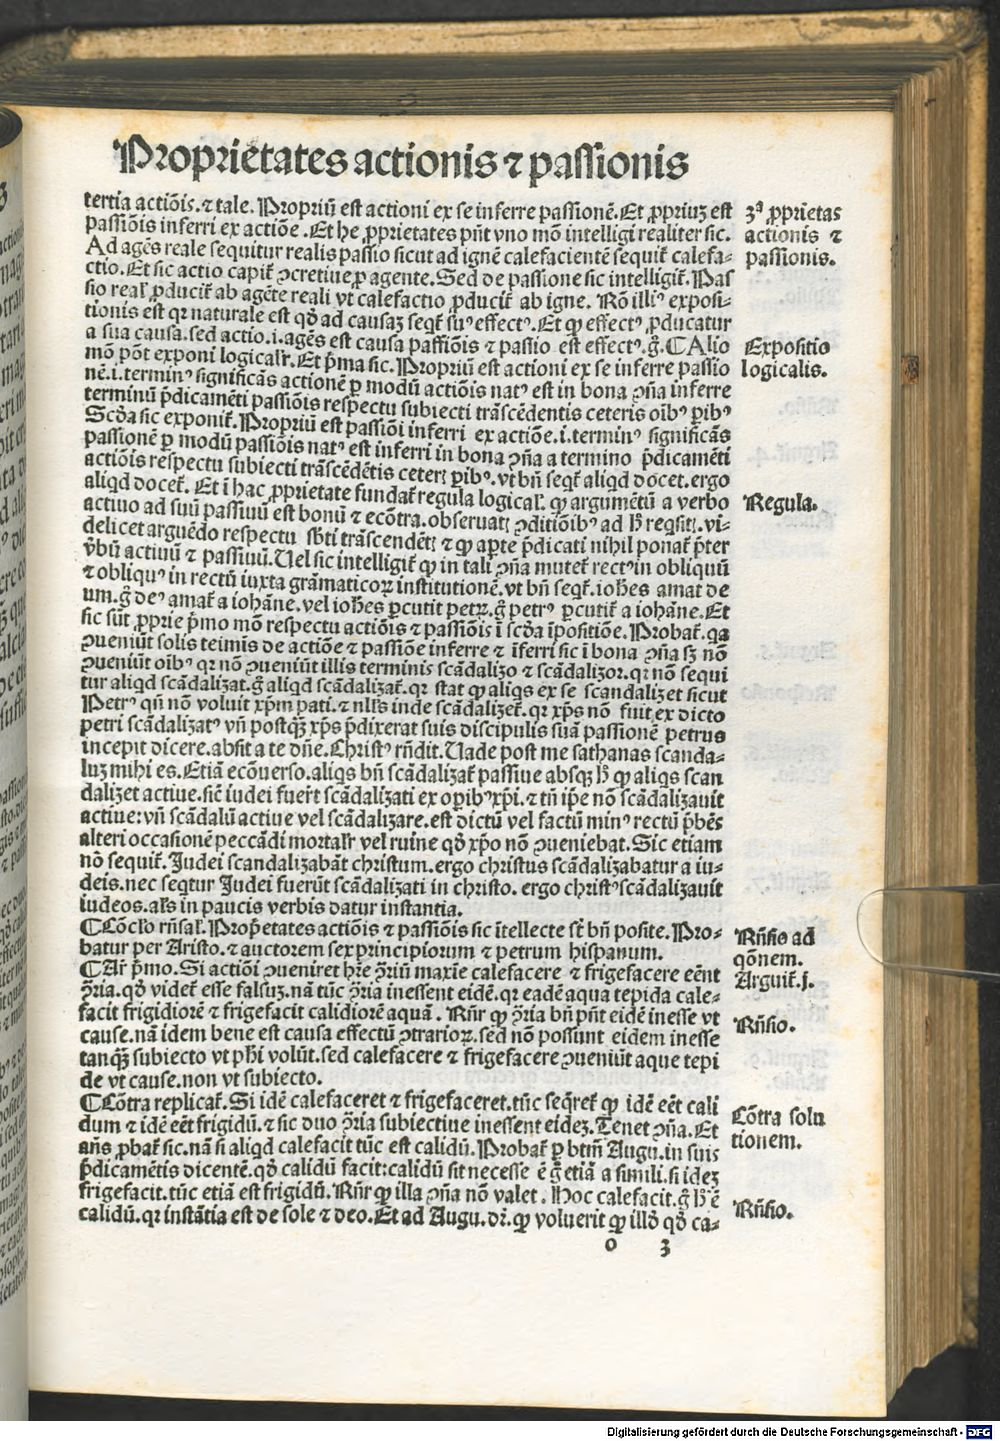 Proprietates actionis ⁊ passionis
tertia actiõis.⁊ tale. Propriũ est actioni ex se inferre passionẽ. Et ꝓpriuz est
passiõis inferri ex actiõe. Et he ꝓprietates pñt vno mõ intelligi realiter sic.
Ad agẽs reale sequitur realis passio sicut ad ignẽ calefacientẽ sequit᷑ calefa-
ctio. Et sic actio capit᷑ ↄcretiue ꝓ agente. Sed de passione sic intelligit᷑. Pas
sio real᷑ ꝓducit᷑ ab agẽte reali vt calefactio ꝓducit᷑ ab igne. Rõ illiꝰ exposi-
tionis est qꝛ naturale est qð ad causaz seqt᷑ suꝰ effectꝰ. Et ꝙ effectꝰ ꝓducatur
a sua causa. sed actio.i. agẽs est causa passiõis ⁊ passio est effectꝰ. g̃. ⸿Alio
mõ põt exponi logicalr᷑. Et p̃ma sic. Propriũ est actioni ex se inferre passio
nẽ.i. terminꝰ significãs actionẽ ꝑ modũ actiõis natꝰ est in bona ↄ̃na inferre
terminũ p̃dicamẽti passiõis respectu subiecti trãscẽdentis ceteris oĩbꝰ ꝑibꝰ
Scða sic exponit᷑. Propriũ est passiõi inferri ex actiõe.i. terminꝰ significãs
passionẽ ꝑ modũ passiõis natꝰ est inferri in bona ↄ̃na a termino p̃dicamẽti
actiõis respectu subiecti trãscẽdẽtis ceterꝭ ꝑibꝰ. vt bñ seqt᷑ aliqd docet. ergo
aliqd docet᷑. Et ĩ hac ꝓprietate fundat᷑ regula logical᷑. ꝙ argumẽtũ a verbo
actiuo ad suũ passiuũ est bonũ ⁊ ecõtra. obseruatꝭ ↄditiõibꝰ ad h̾ reqsitꝭ. vi-
delicet arguẽdo respectu sb̾ti trãscendẽtꝭ ⁊ ꝙ a ꝑte p̃dicati nihil ponat᷑ p̃ter
v̾bũ actiuũ ⁊ passiuũ. Uel sic intelligit᷑ ꝙ in tali ↄ̃na mutet᷑ rectꝰ in obliquũ
⁊ obliquꝰ in rectũ iuxta grãmaticoꝝ institutionẽ. vt bñ seqt᷑. iohẽs amat de
um. g̃ deꝰ amat᷑ a iohãne. vel iohẽs ꝑcutit petrꝝ. g̃ petrꝰ ꝑcutit᷑ a iohãne. Et
sic sũt ꝓprie p̃mo mõ respectu actiõis ⁊ passiõis ĩ scða ĩpositiõe. Probat᷑. qa
ↄueniũt solis teimis de actiõe ⁊ passiõe inferre ⁊ ĩferri sic ĩ bona ↄ̃na sꝫ nõ
ↄueniũt oĩbꝰ qꝛ nõ ↄueniũt illis terminis scãdalizo ⁊ scãdalizor. qꝛ nõ sequi
tur aliqd scãdalizat. g̃ aliqd scãdalizat᷑. qꝛ stat ꝙ aliqs ex se scandalizet sicut
Petrꝰ qñ nõ voluit xp̃m pati. ⁊ nllꝰs inde scãdalizet᷑. qꝛ xp̃s nõ fuit ex dicto
petri scãdalizatꝰ vñ postqꝫ xp̃s p̃dixerat suis discipulis suã passionẽ petrus
incepit dicere. absit a te dñe. Christꝰ rñdit. Uade post me sathanas scanda-
luz mihi es. Etiã ecõuerso. aliqs bñ scãdalizat᷑ passiue absqꝫ h̾ ꝙ aliqs scan
dalizet actiue. sicẽ iudei fuer᷑t scãdalizati ex oꝑibꝰ xp̃i. ⁊ tñ ip̃e nõ scãdalizauit
actiue: vñ scãdalũ actiue vel scãdalizare. est dictũ vel factũ minꝰ rectũ p̃bẽs
alteri occasionẽ peccãdi mortalr᷑ vel ruine qð xp̃o nõ ↄueniebat. Sic etiam
nõ sequit᷑. Judei scandalizabãt christum. ergo christus scãdalizabatur a iu-
deis. nec seqtur Judei fuerũt scãdalizati in christo. ergo christꝰ scãdalizauit
iudeos. als in paucis verbis datur instantia.
⸿Cõcło rñsał. Prop̃etates actiõis ⁊ passiõis sic ĩtellecte st̃ bñ posite. Pro-
batur per Aristo. ⁊ auctorem sex principiorum ⁊ petrum hispanum.
⸿Ar᷑ p̃mo. Si actiõi ↄueniret hr̃e ↄ̃riũ maxĩe calefacere ⁊ frigefacere eẽnt
ↄ̃ria. qð videt᷑ esse falsuz. nã tũc ↄ̃ria inessent eidẽ. qꝛ eadẽ aqua tepida cale-
facit frigidiorẽ ⁊ frigefacit calidiorẽ aquã. Rñr ꝙ ↄ̃ria bñ pñt eidẽ inesse vt
cause. nã idem bene est causa effectũ ↄtrarioꝝ. sed nõ possunt eidem inesse
tanqꝫ subiecto vt ph̾i volũt. sed calefacere ⁊ frigefacere ↄueniũt aque tepi
de vt cause. non vt subiecto.
⸿Cõtra replicat᷑. Si idẽ calefaceret ⁊ frigefaceret. tũc seq̃ret᷑ ꝙ idẽ eẽt cali
dum ⁊ idẽ eẽt frigidũ. ⁊ sic duo ↄ̃ria subiectiue inessent eidez. Tenet ↄ̃na. Et
añs ꝓbat᷑ sic. nã si aliqd calefacit tũc est calidũ. Probat᷑ ꝑ btm̃ Augu. in suis
p̃dicamẽtis dicentẽ. qð calidũ facit: calidũ sit necesse ẽ g̃ etiã a simili. si idez
frigefacit. tũc etiã est frigidũ. Rñr ꝙ illa ↄ̃na nõ valet. Hoc calefacit. g̃ h̾ ẽ
calidũ. qꝛ instãtia est de sole ⁊ deo. Et ad Augu. dr̃. ꝙ voluerit ꝙ illð qð ca-
o 3
3ª ꝓprietas
actionis ⁊
passionis.
Expositio
logicalis.
Regula.
Rñsio ad
qõnem.
Arguit᷑.j.
Rñsio.
Cõtra solu
tionem.
Rñsio.
Digitalisierung gefördert durch die Deutsche Forschungsgemeinschaft - DFG